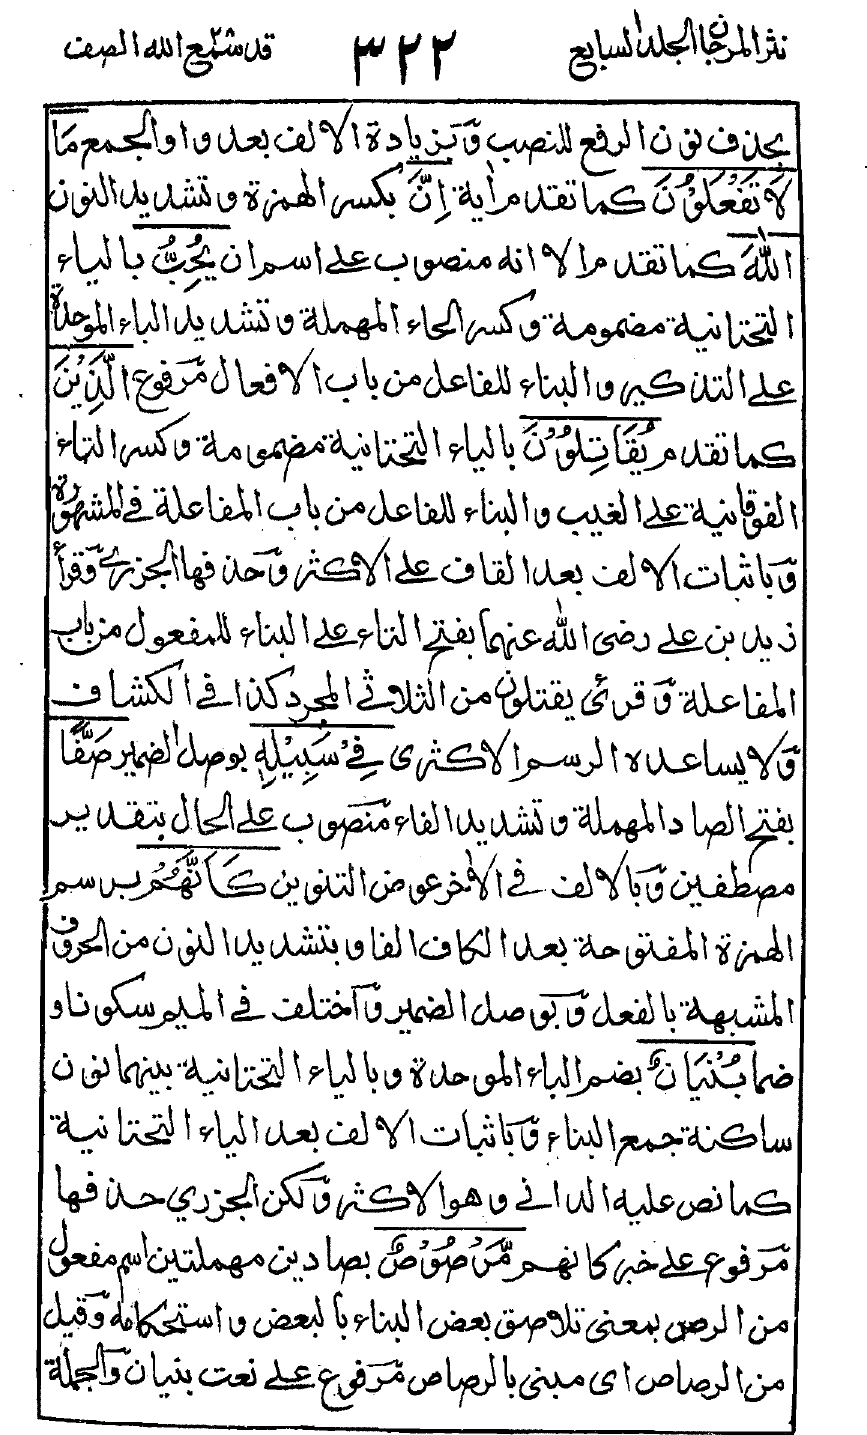 نثر المرجان الجلد السابع ٣٢٢ قد سمع الله الصف
بحذف نون الرفع للنصب وبزيادة الالف بعد واو الجمع مَا
لَا تَفْعَلُوْنَ كما تقدم اٰية اِنَّ بكسر الهمزة وتشديد النون
اللّٰهَ كما تقدم الا انه منصوب على اسم ان يُحِبُّ بالياء
التحتانية مضمومة وكسر الحاء المهملة وتشديد الباء الموحدة
على التذكير والبناء للفاعل من باب الافعال مرفوع الَّذِيْنَ
كما تقدم يُقَاتِلُوْنَ بالياء التحتانية مضمومة وكسر التاء
الفوقانية على الغيب والبناء للفاعل من باب المفاعلة في المشهورة
وباثبات الالف بعد القاف على الاكثر وحذفها الجزري وقرأ
زيد بن على رضى الله عنهما بفتح التاء على البناء للمفعول من باب
المفاعلة وقرئ يقتلون من الثلاثي المجرد كذا في الكشاف
ولا يساعده الرسم الاكثرى فِيْ سَبِيْلِهٖ بوصل الضمير صَفًّا
بفتح الصاد المهملة وتشديد الفاء منصوب على الحال بتقدير
مصطفين وبالالف في الاٰخر عوض التنوين كَاَنَّهُمْ برسم
الهمزة المفتوحة بعد الكاف الفا وبتشديد النون من الحروف
المشبهة بالفعل وبوصل الضمير واختلف في الميم سكونا و
ضما بُنْيَانٌ بضم الباء الموحدة وبالياء التحتانية بينهما نون
ساكنة جمع البناء وباثبات الالف بعد الياء التحتانية
كما نص عليه الداني وهو الاكثر ولكن الجزري حذفها
مرفوع على خبر كانهم مَّرْصُوْصٌ بصادين مهملتين اسم مفعول
من الرص بمعنى تلاصق بعض البناء بالبعض واستحكامه وقيل
من الرصاص اى مبنى بالرصاص مرفوع على نعت بنيان والجملة